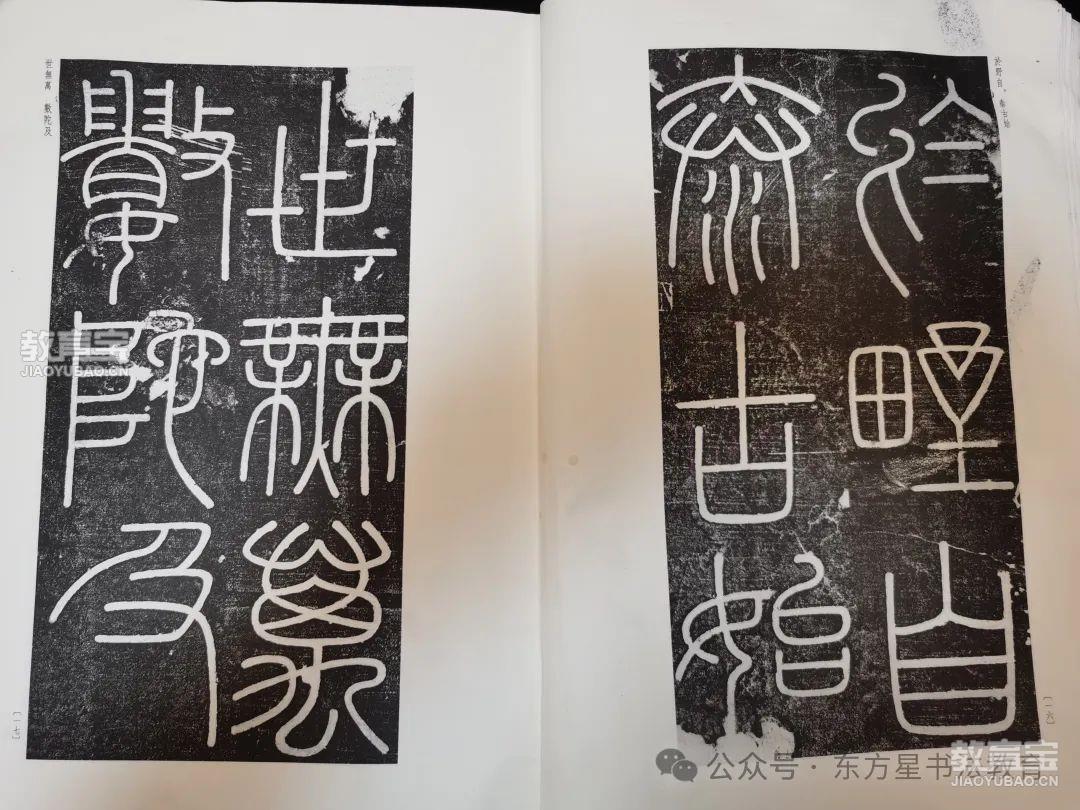 於野自。泰古始
於野自
泰古始
〔一六〕
世無萬 數陀及
世無萬
數陀及
〔一七〕
教育宝
JIAOYUBAO.CN
公众号·东方星书法教育
教育宝
JIAOYUBAO.CN